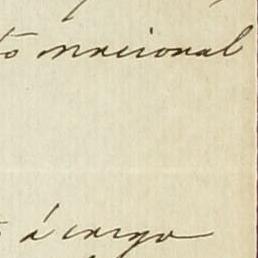 to nacional
á cargo